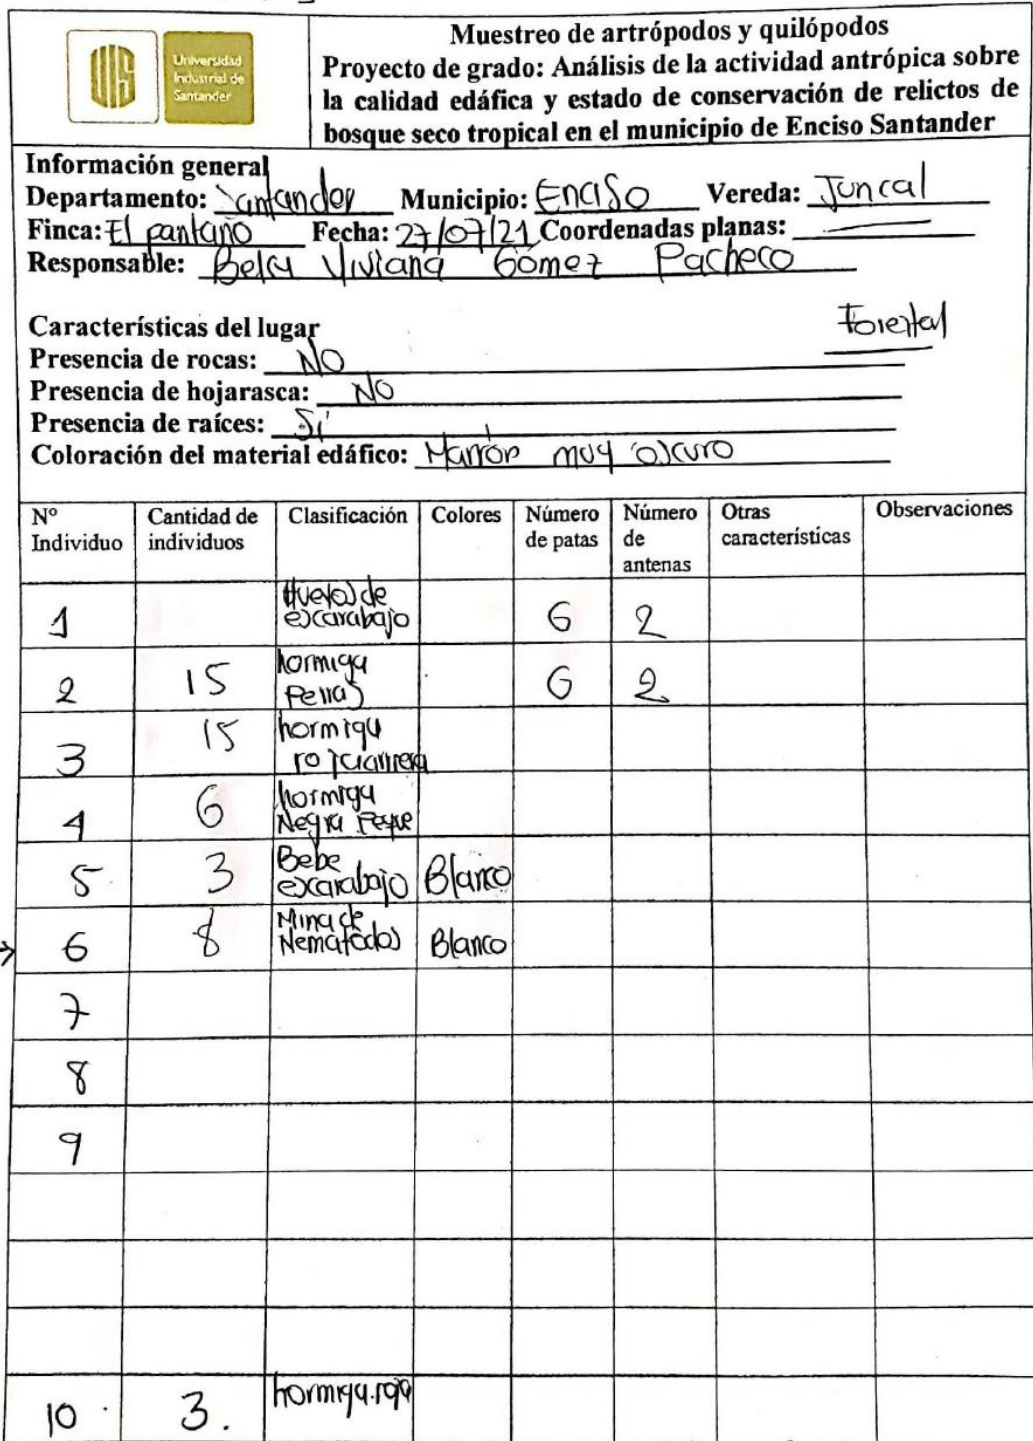 Universidad
Industrial de
Santander
Muestreo de artrópodos y quilópodos
Proyecto de grado: Análisis de la actividad antrópica sobre
la calidad edáfica y estado de conservación de relictos de
bosque seco tropical en el municipio de Enciso Santander
Información general
Departamento: Santander Municipio: Enciso Vereda: Juncal
Finca: El pantano Fecha: 27/07/21 Coordenadas planas:
Responsable: Viviana Gómez Pacheco
Características del lugar Forestal
Presencia de rocas: NO
Presencia de hojarasca: NO
Presencia de raíces: Sí
Coloración del material edáfico: Marrón muy oscuro
Nº Individuo Cantidad de individuos Clasificación Colores Número de patas Número de antenas Otras características Observaciones
1 Huevos de escarabajo 6 2
2 15 hormiga 6 2
3 15 hormiga
4 6 hormiga Negra Peque
5 3 Bebe escarabajo Blanco
6 8 Mina de Nematodos Blanco
7
8
9
10 3. hormiga roja